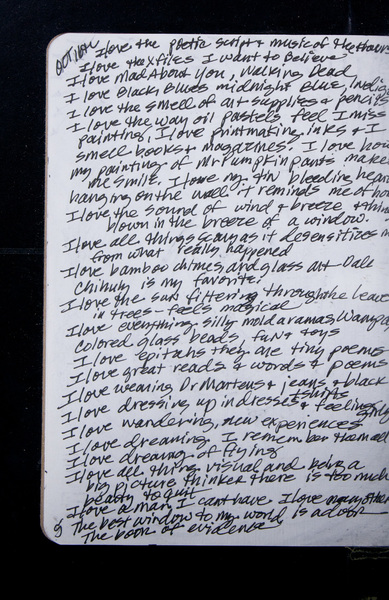 Oct 16th I love the poetic script & music of the
I love the X files I want to Believe
I love Mad About You, Walking Dead
I love Black Blues midnight Blue, Indigo
I love the smell of art supplies & pencils
I love the way oil pastels feel I miss
painting, I love printmaking inks & I
smell books & magazines. I love how
my painting of Mr Pumpkin pants makes
me smile. I love my tin bleeding heart
hanging on the wall it reminds me of
I love the sound of wind & breeze &
blown in the breeze of a window.
I love all things scary as it desensitizes
from what really happened
I love bamboo chimes, and glass art Dale
Chihuly is my favorite!
I love the sun filtering through the leaves
in trees - feels magical
I love everything silly moldaramas
colored glass beads, fun & toys
I love epitahs they are tiny poems
I love great reads & words & poems
I love wearing Dr Martens & jeans & black
tshirts
I love dressing up in dresses & feeling girly
I love wandering, new experiences
I love dreaming. I remember them all
I love dreams of flying
I love all things visual and being a
big picture thinker there is too much
beauty to quit
I love a man I cant have. I love
The best window to my world is a door
The book of evidence